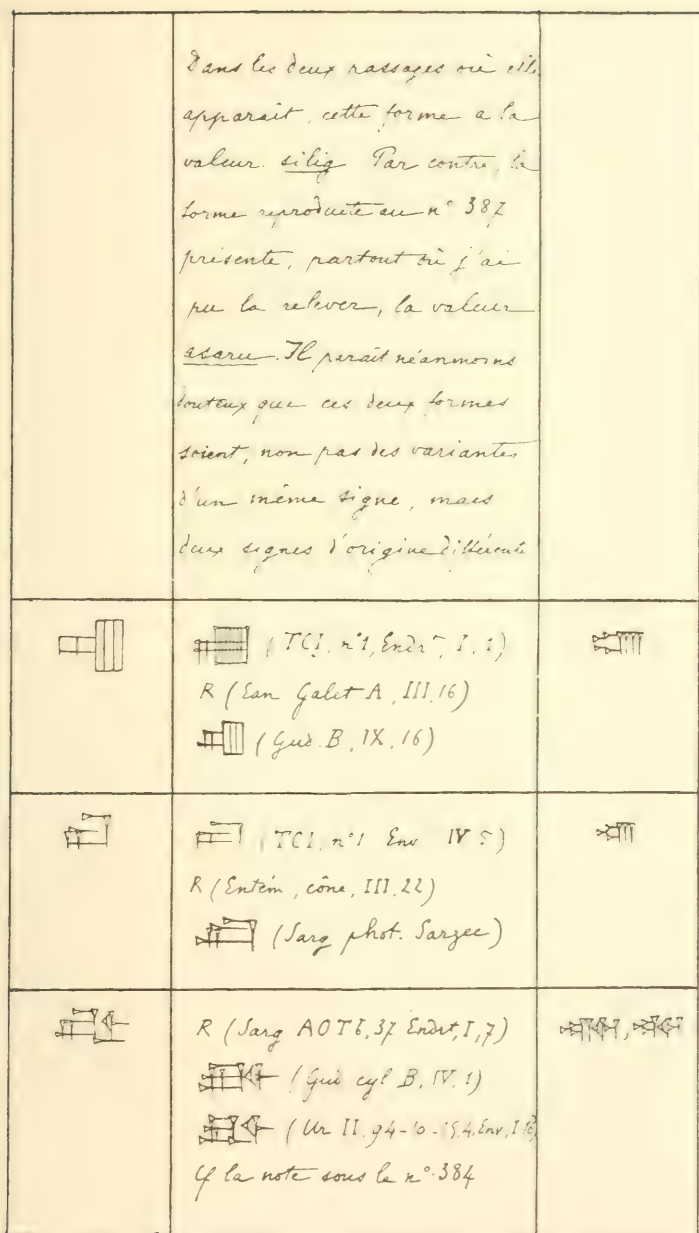 Dans les deux passages où elle
apparait, cette forme a la
valeur silig Par contre, la
forme reproduite au n° 387
présente, partout où j'ai
pu la relever, la valeur
asaru. Il parait néanmoins
douteux que ces deux formes
soient, non pas des variantes
d'un même signe, mais
deux signes d'origine différente
(TCI, n°1, Endrt, I, 1)
R (Ean Galet A, III, 16)
(Gud. B, IX, 16)
(TCI, n°1 Env IV 5)
R (Entém, cône, III, 22)
(Sarg phot. Sarzec)
R (Sarg AOTb, 37 Endrt, I, 7)
(Gud cyl B, IV, 1)
(Ur II, 94-10- Env, I
Cf la note sous le n° 384